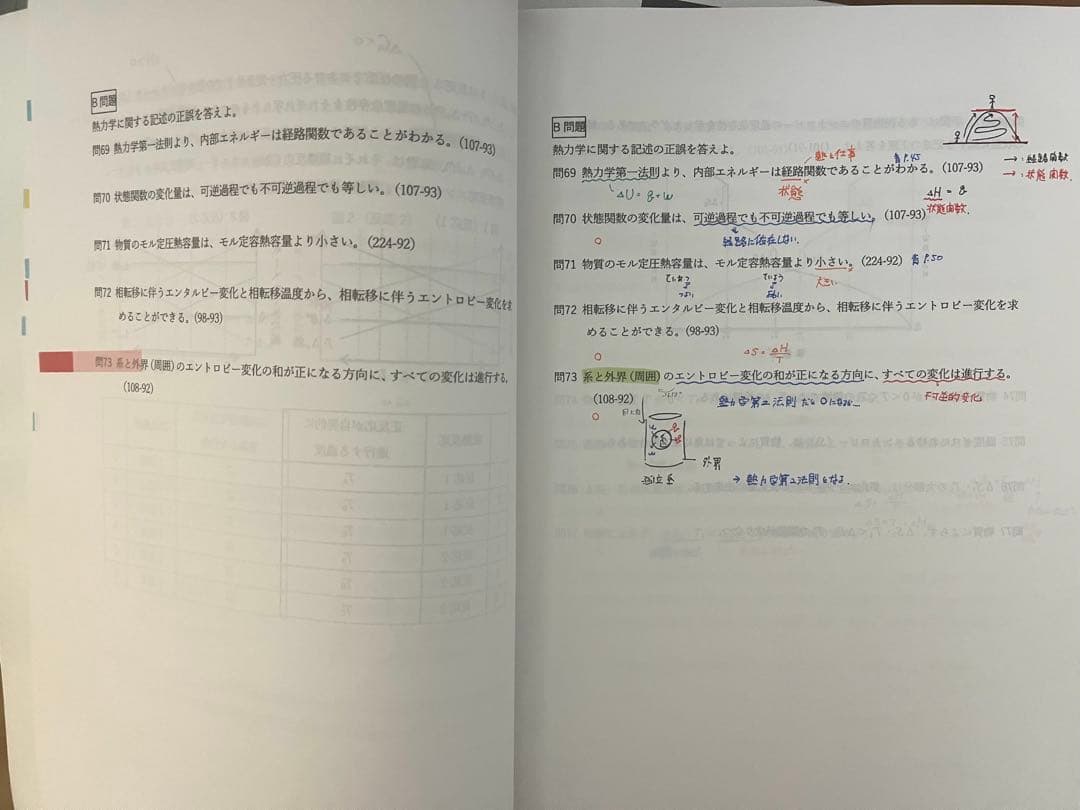 B 問題
熱力学に関する記述の正誤を答えよ。
問69 熱力学第一法則より、内部エネルギーは経路関数であることがわかる。(107-93)
問70 状態関数の変化量は、可逆過程でも不可逆過程でも等しい。(107-93)
問71 物質のモル定圧熱容量は、モル定容熱容量より小さい。(224-92)
問72 相転移に伴うエンタルピー変化と相転移温度から、相転移に伴うエントロピー変化を求
めることができる。(98-93)
問73 系と外界(周囲)のエントロピー変化の和が正になる方向に、すべての変化は進行する。
(108-92)
B 問題
熱力学に関する記述の正誤を答えよ。
熱と仕事
青P.45
→:経路関数
→:状態関数
問69 熱力学第一法則より、内部エネルギーは経路関数であることがわかる。(107-93)
ΔU = q+w
状態
ΔH = q
状態関数.
問70 状態関数の変化量は、可逆過程でも不可逆過程でも等しい。(107-93)
○
経路に依存しない.
問71 物質のモル定圧熱容量は、モル定容熱容量より小さい。(224-92) 青P.50
大きい
問72 相転移に伴うエンタルピー変化と相転移温度から、相転移に伴うエントロピー変化を求
めることができる。(98-93)
○
ΔS = ΔH/T
問73 系と外界(周囲)のエントロピー変化の和が正になる方向に、すべての変化は進行する。
(108-92)
○
不可逆的変化
外界
孤立系